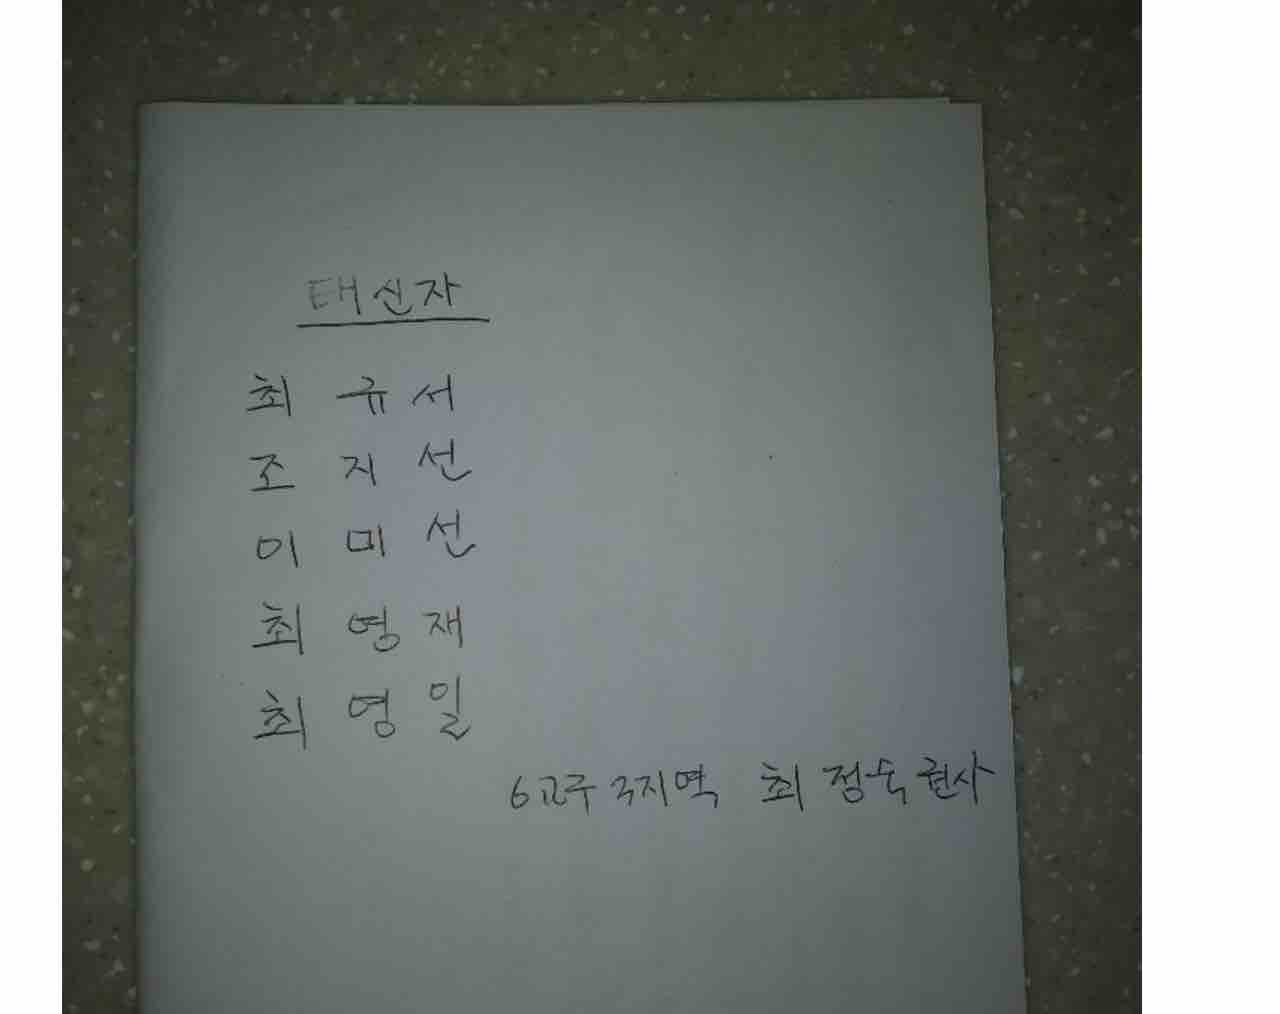 태신자
최 규 서
조 지 선
이 미 선
최 영 재
최 영 일
6교구 3지역 최 정숙 권사